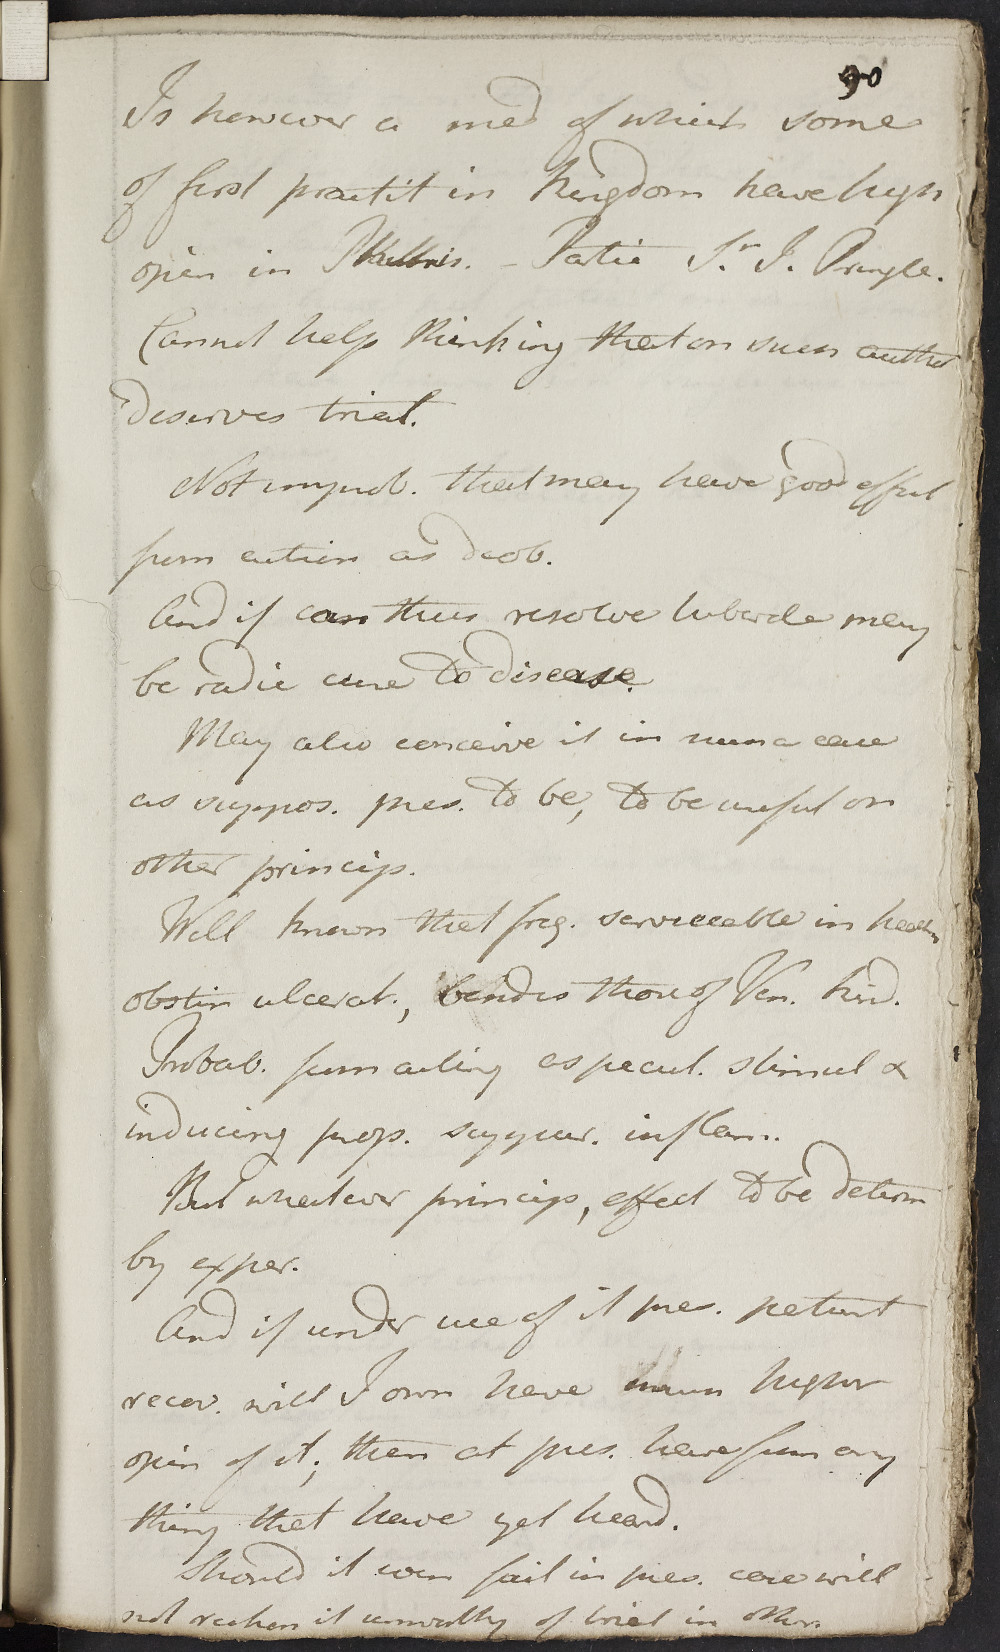 90
Is however a med of which some
of first practit in kingdom have high
opin in Phthis. - Partic Sr. J. Pringle.
Cannot help thinking that on such author
deserves trial.
Not improb. that may have good effect
from action as deob.
And if can thus resolve tubercle may
be radic cure to disease.
May also conceive it in num a case
as suppos. pres. to be, to be useful on
other princip.
Well known that freq. serviceable in heal
obstin ulcerat., besides those of Ven. kind.
Probab. from acting as pecul. stimul &
inducing prop. suppur. inflam.
But whatever princip, effect to be determ
by exper.
And if under use of it pres. patient
recov. will I own have much higher
opin of it, then at pres. have from any
thing that have yet heard.
Should it even fail in pres. case will
not reckon it unworthy of trial in other.